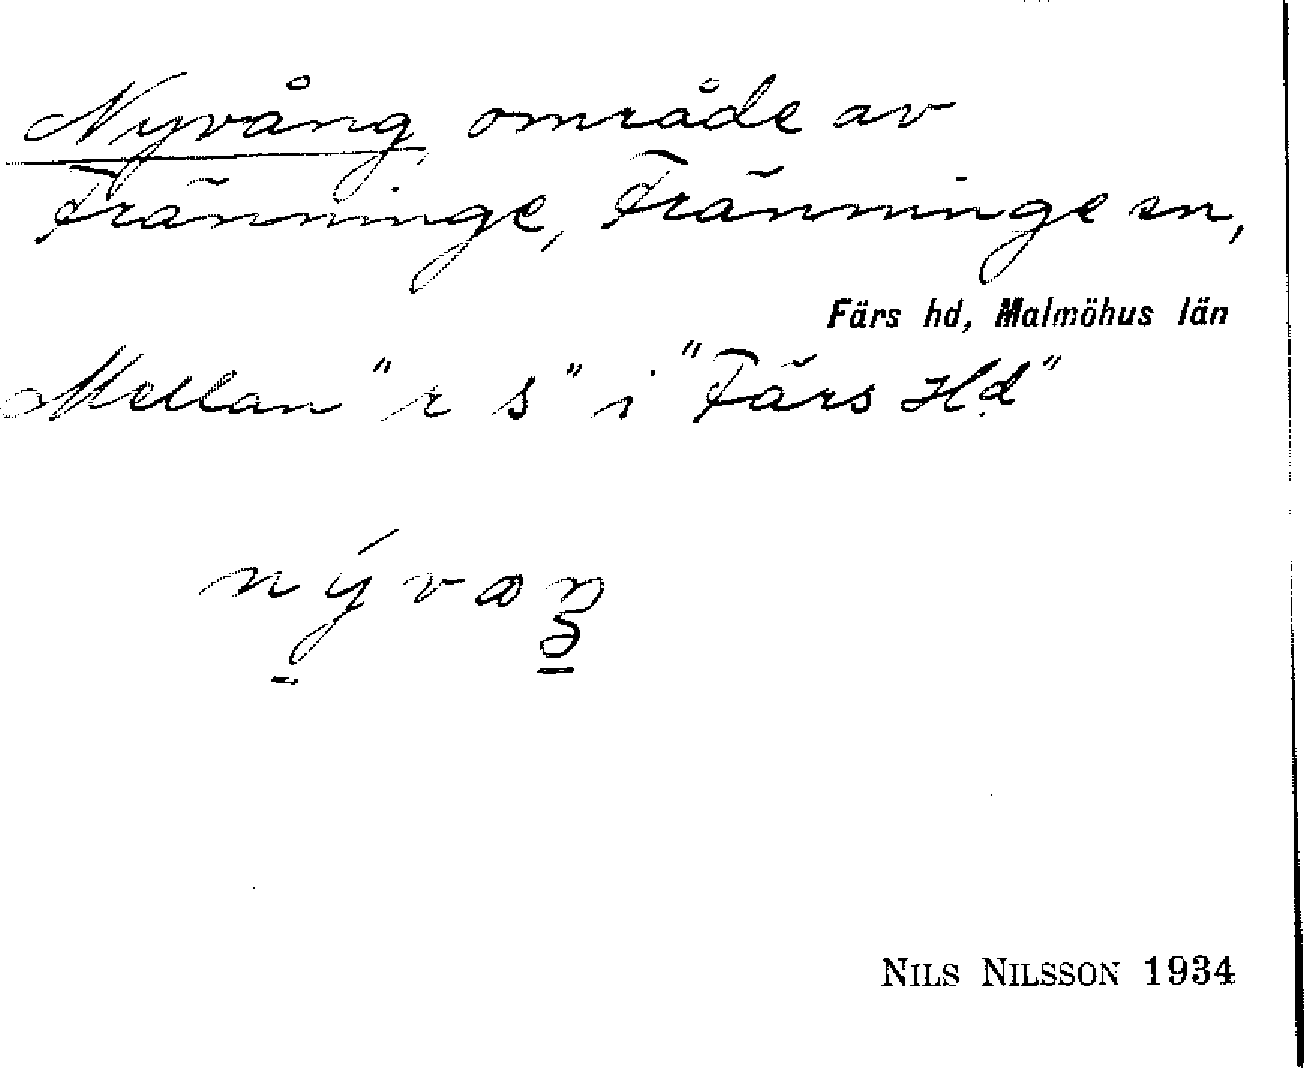 Nyvång område av
Fränninge, Fränninge sn,
Färs hd, Malmöhus län
Mellan "r s" i "Färs Hd"
NILS NILSSON 1934